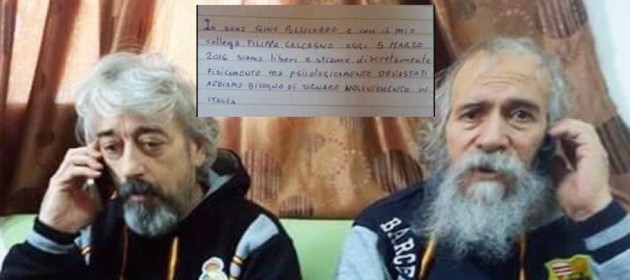 Io sono GINO POLLICARDO e con il mio
collega FILIPPO CALCAGNO oggi 5 MARZO
2016 siamo liberi e stiamo discretamente
FISICAMENTE MA PSICOLOGICAMENTE DEVASTATI
ABBIAMO BISOGNO DI TORNARE URGENTEMENTE IN
ITALIA
BARCE